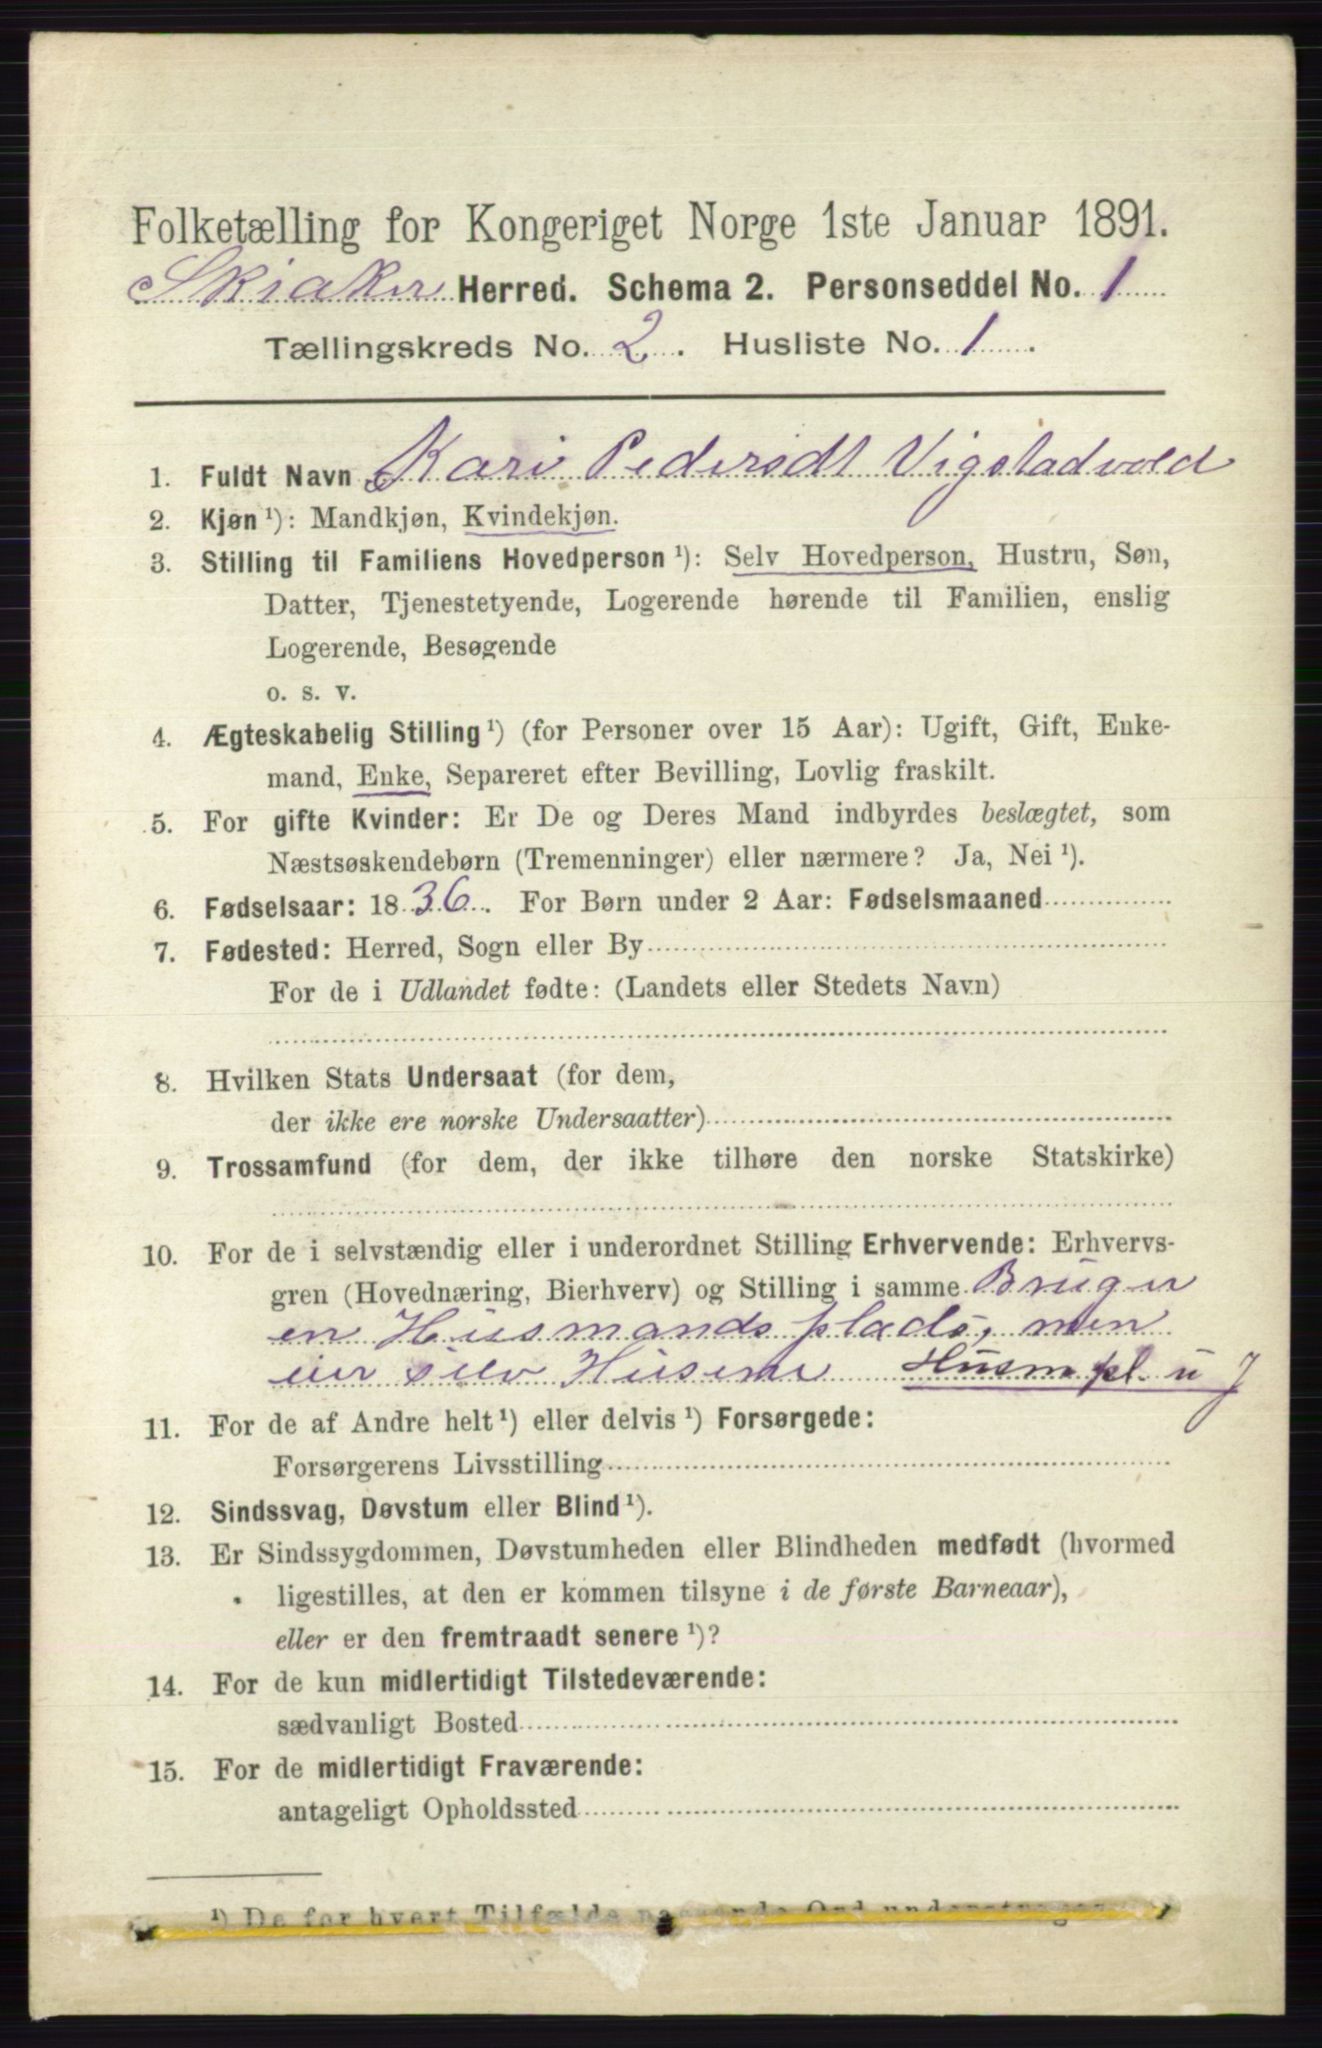 Folketælling for Kongeriget Norge 1ste Januar 1891.
Skiaker Herred. Schema 2. Personseddel No. 1
Tællingskreds No. 2. Husliste No. 1.
1. Fuldt Navn Kari Pedersdt Vigstadvold
2. Kjøn ¹): Mandkjøn, Kvindekjøn.
3. Stilling til Familiens Hovedperson ¹): Selv Hovedperson, Hustru, Søn,
Datter, Tjenestetyende, Logerende hørende til Familien, enslig
Logerende, Besøgende
o. s. v.
4. Ægteskabelig Stilling ¹) (for Personer over 15 Aar): Ugift, Gift, Enke-
mand, Enke, Separeret efter Bevilling, Lovlig fraskilt.
5. For gifte Kvinder: Er De og Deres Mand indbyrdes beslægtet, som
Næstsøskendebørn (Tremenninger) eller nærmere? Ja, Nei ¹).
6. Fødselsaar: 1836. For Børn under 2 Aar: Fødselsmaaned
7. Fødested: Herred, Sogn eller By
For de i Udlandet fødte: (Landets eller Stedets Navn)
8. Hvilken Stats Undersaat (for dem,
der ikke ere norske Undersaatter)
9. Trossamfund (for dem, der ikke tilhøre den norske Statskirke)
10. For de i selvstændig eller i underordnet Stilling Erhvervende: Erhvervs-
gren (Hovednæring, Bierhverv) og Stilling i samme Bruger
en Husmandsplads, men
eier selv Husene Husmpl. u J
11. For de af Andre helt ¹) eller delvis ¹) Forsørgede:
Forsørgerens Livsstilling
12. Sindssvag, Døvstum eller Blind ¹).
13. Er Sindssygdommen, Døvstumheden eller Blindheden medfødt (hvormed
ligestilles, at den er kommen tilsyne i de første Barneaar),
eller er den fremtraadt senere ¹)?
14. For de kun midlertidigt Tilstedeværende:
sædvanligt Bosted
15. For de midlertidigt Fraværende:
antageligt Opholdssted
¹) De for hvert Tilfælde passende Ord understreges